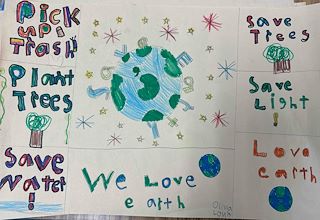 Pick
up
Trash
Plant
Trees
Save
Water!
Save
Trees
Save
Light
!
Love
earth
We Love
earth